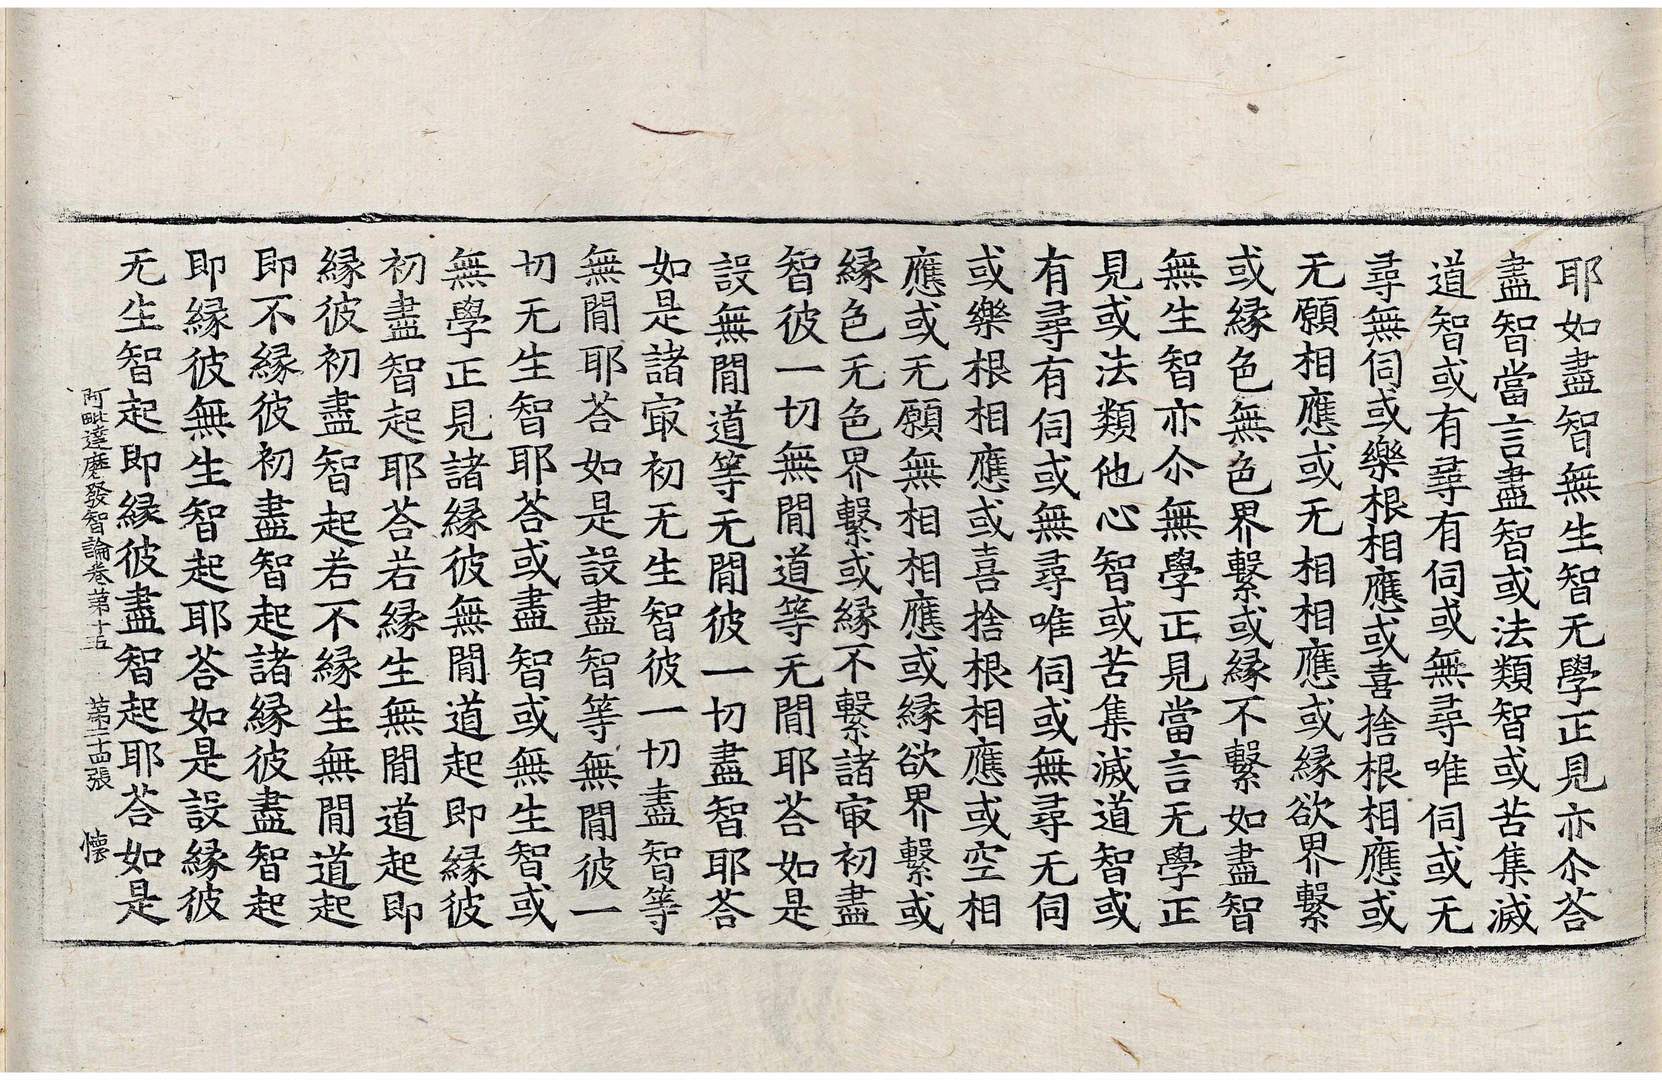 耶如盡智無生智无學正見亦尒荅
盡智當言盡智或法類智或苦集滅
道智或有尋有伺或無尋唯伺或无
尋無伺或樂根相應或喜捨根相應或
无願相應或无相相應或緣欲界繫
或緣色無色界繫或緣不繫如盡智
無生智亦尒無學正見當言无學正
見或法類他心智或苦集滅道智或
有尋有伺或無尋唯伺或無尋无伺
或樂根相應或喜捨根相應或空相
應或无願無相相應或緣欲界繫或
緣色无色界繫或緣不繫諸㝡初盡
智彼一切無閒道等无閒耶荅如是
設無閒道等无閒彼一切盡智耶荅
如是諸㝡初无生智彼一切盡智等
無閒耶荅如是設盡智等無閒彼一
切无生智耶荅或盡智或無生智或
無學正見諸緣彼無閒道起即緣彼
初盡智起耶荅若緣生無閒道起即
緣彼初盡智起若不緣生無閒道起
即不緣彼初盡智起諸緣彼盡智起
即緣彼無生智起耶荅如是設緣彼
无生智起即緣彼盡智起耶荅如是
阿毗達磨發智論卷第十五 第二十四張 懷